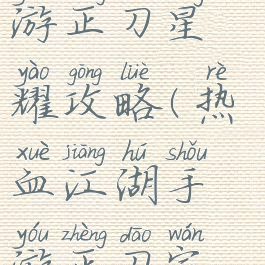 游正刀星
yào gōng lüè rè
耀攻略(热
xuè jiāng hú shǒu
血江湖手
yóu zhèng dāo wán
游正刀完